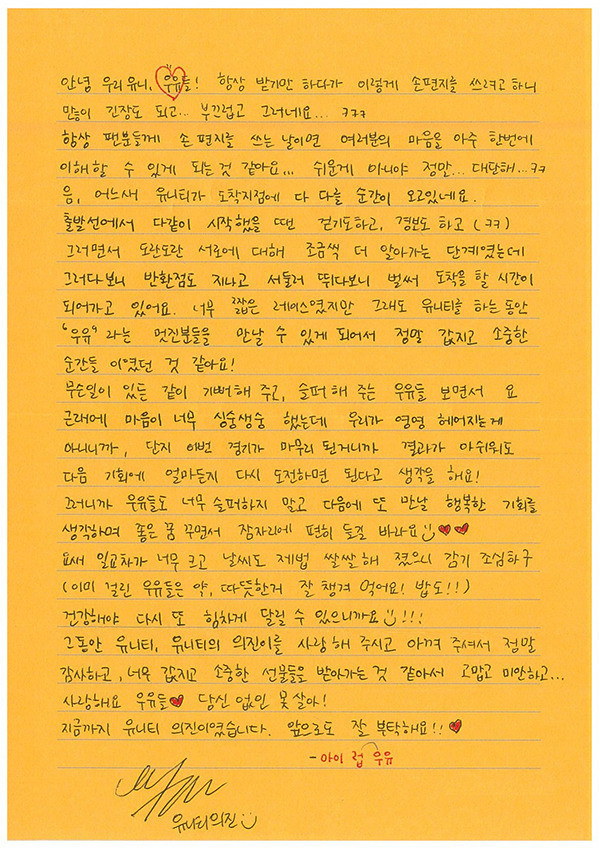 안녕 우리 유니, 우유들! 항상 받기만 하다가 이렇게 손편지를 쓰려고 하니
만능이 긴장도 되고... 부끄럽고 그러네요... ㅋㅋㅋ
항상 팬분들께 손 편지를 쓰는 날이면 여러분의 마음을 아주 한번에
이해 할 수 있게 되는 것 같아요... 쉬운게 아니야 정만... 대단해...ㅋㅋ
음, 어느새 유니티가 도착지점에 다 다를 순간이 오고있네요.
출발선에서 다같이 시작했을 땐 걷기도하고, 경보도 하고 (ㅋㅋ)
그러면서 도란도란 서로에 대해 조금씩 더 알아가는 단계였는데
그러다보니 반환점도 지나고 서둘러 뛰다보니 벌써 도착을 할 시간이
되어가고 있어요. 너무 짧은 레이스였지만 그래도 유니티를 하는 동안
"우유" 라는 멋진분들을 만날 수 있게 되어서 정말 값지고 소중한
순간들 이였던 것 같아요!
무슨일이 있든 같이 기뻐해 주고, 슬퍼 해 주는 우유들 보면서 요
근래에 마음이 너무 싱숭생숭 했는데 우리가 영영 헤어지는게
아니니까, 단지 이번 경기가 마무리 된거니까 결과가 아쉬워도
다음 기회에 얼마든지 다시 도전하면 된다고 생각을 해요!
그러니까 우유들도 너무 슬퍼하지 말고 다음에 또 만날 행복한 기회를
생각하며 좋은 꿈 꾸면서 잠자리에 편히 들길 바라요
요새 일교차가 너무 크고 날씨도 제법 쌀쌀해 졌으니 감기 조심하구
(이미 걸린 우유들은 약, 따뜻한거 잘 챙겨 먹어요! 밥도!!)
건강해야 다시 또 힘차게 달릴 수 있으니까요 !!!
그동안 유니티, 유니티의 의진이를 사랑 해 주시고 아껴 주셔서 정말
감사하고, 너무 값지고 소중한 선물들을 받아가는 것 같아서 고맙고 미안하고...
사랑해요 우유들♥ 당신 없인 못 살아!
지금까지 유니티 의진이였습니다. 앞으로도 잘 부탁해요!! ♥
- 아이 럽 우유
유니티 의진